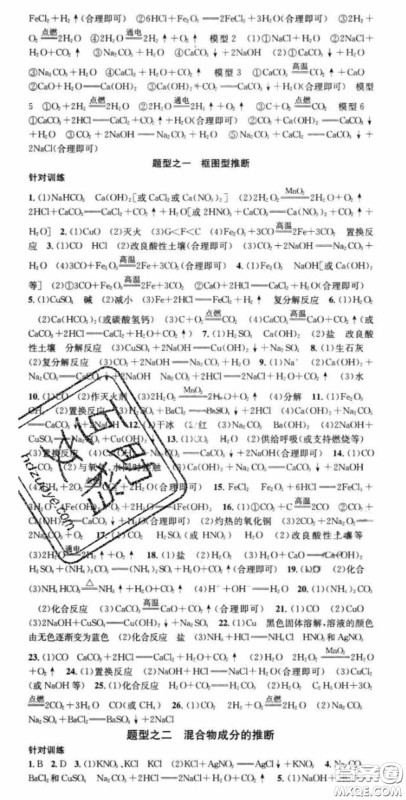 FeCl₂+H₂↑(合理即可) ②6HCl+Fe₂O₃══2FeCl₃+3H₂O(合理即可) ③2H₂+
O₂点燃══2H₂O ④2H₂O通电══2H₂↑+O₂↑ 模型2 (1)①NaCl+H₂O ②2NaCl+
H₂O+CO₂↑ ③Na₂CO₃+H₂O ④CaCO₃↓+2NaOH (2)①CaCO₃↓+H₂O
③Na₂CO₃+H₂O ④CaCl₂+H₂O+CO₂↑ 模型3 ①CaCO₃高温══CO₂↑+CaO
②CaO+H₂O══Ca(OH)₂ ③Ca(OH)₂+CO₂══CaCO₃↓+H₂O(合理即可) 模型
5 ①O₂+2H₂点燃══2H₂O ②2H₂O通电══2H₂↑+O₂↑ ③C+O₂点燃══CO₂ 模型6
①CaCO₃+2HCl══CaCl₂+CO₂↑+H₂O(合理即可) ②CO₂+Ca(OH)₂══CaCO₃
↓+H₂O ③CO₂+2NaOH══Na₂CO₃+H₂O ④Na₂CO₃+CaCl₂══CaCO₃↓+
2NaCl(合理即可)
题型之一 框图型推断
针对训练
1.(1)NaHCO₃ Ca(OH)₂[或CaCl₂或Ca(NO₃)₂] (2)2H₂O₂MnO₂══2H₂O+O₂↑
2HCl+CaCO₃══CaCl₂+CO₂↑+H₂O[或2HNO₃+CaCO₃══Ca(NO₃)₂+CO₂↑+
H₂O] 2.(1)CuO (2)灭火 (3)G<F<C (4)Fe₂O₃+3CO高温══2Fe+3CO₂(合理即可) 置换反
应 3.(1)CO HCl (2)改良酸性土壤(合理即可) (3)CO₂+2NaOH══Na₂CO₃+
H₂O (4)3CO+Fe₂O₃高温══2Fe+3CO₂(合理即可) 4.(1)Fe₂O₃ NaOH[或Ca(OH)₂
等] (2)①3CO+Fe₂O₃高温══2Fe+3CO₂ ②CaO+2HCl══CaCl₂+H₂O(合理即可)
5.(1)CuSO₄ 碱 (2)减小 (3)Fe+2HCl══FeCl₂+H₂↑ 复分解反应 6.(1)H₂O₂
(2)Ca(HCO₃)₂(或碳酸氢钙) (3)C+O₂点燃══CO₂ (4)CaCO₃高温══CaO+CO₂↑(或
CaCO₃+2HCl══CaCl₂+H₂O+CO₂↑) 7.(1)H₂SO₄ Ca(OH)₂ (2)盐 改良酸
性土壤 分解反应 (3)CuSO₄+2NaOH══Cu(OH)₂↓+Na₂SO₄ 8.(1)生石灰
(2)复分解反应 (3)CO₂+2NaOH══Na₂CO₃+H₂O 9.(1)Na⁺ (2)Ca(OH)₂+
Na₂CO₃══CaCO₃↓+2NaOH Na₂CO₃+2HCl══2NaCl+H₂O+CO₂↑ (3)水
10.(1)CO₂ (2)作灭火剂 (3)2H₂O₂MnO₂══2H₂O+O₂↑ (4)分解 11.(1)Fe₂O₃
(2)置换反应 (3)H₂SO₄+BaCl₂══BaSO₄↓+2HCl (4)Ca(OH)₂+Na₂CO₃══
CaCO₃↓+2NaOH 12.(1)干冰 (2)红 (3)Na₂CO₃ Ba(OH)₂ (4)2NaOH+
CuSO₄══Na₂SO₄+Cu(OH)₂↓ 13.(1)CO₂ H₂O (2)供给呼吸(或支持燃烧等)
(3)置换反应 (4)CaCO₃+2HCl══CaCl₂+CO₂↑+H₂O(合理即可) 14.(1)CO₂
CaCO₃ (2)与氧、水同时接触
15.(1)CO₂ (2)Fe₂O₃+6HCl══2FeCl₃+
16.(1)①CO₂+C高温══2CO ②CO₂+
Ca(OH)₂══CaCO₃↓+H₂O(合理即可) (2)灼热的氧化铜 (3)2CO+2O₂══
17. H₂SO₄(或HNO₃) H₂O (2)改良酸性土壤等
18.(1)盐 (2)H₂O₂ (3)H₂O+CaO══Ca(OH)₂
H₂SO₄+(NH₄)₂CO₃══(NH₄)₂SO₄+H₂O+CO₂↑(合理即可) (2)化合
(3)NH₄HCO₃△══NH₃↑+H₂O+CO₂↑ (4)H⁺+OH⁻══H₂O 20.(1)(NH₄)₂CO₃
(2)化合反应 (3)CaCO₃高温══CaO+CO₂↑(合理即可) 21.(1)CO (2)CuO
(3)2NaOH+CuSO₄══Cu(OH)₂↓+Na₂SO₄ 22.(1)Cu 黑色固体溶解,溶液的颜色
由无色逐渐变为蓝色 (2)化合反应 盐 (3)NH₃+HCl══NH₄Cl HNO₃和AgNO₃
23.(1)CO CaCO₃+2HCl══CaCl₂+H₂O+CO₂↑ (2)H₂O 2H₂O₂MnO₂══2H₂O
+O₂↑ 24.(1)置换反应 (2)NaOH+HCl══NaCl+H₂O(合理即可) (3)CuCl₂
(或NaOH等) 25.(1)化合反应 H₂O+CO₂══H₂CO₃ (2)H₂O₂ C₂H₅OH+3O₂
点燃══2CO₂+3H₂O (3)CO(或CH₄) 26.(1)CO₂ (2)2H₂O (2)Na₂CO₃
Na₂SO₄+BaCl₂══BaSO₄↓+2NaCl
题型之二 混合物成分的推断
针对训练
1.B 2.D 3.(1)KNO₃、KCl KCl (2)KCl+AgNO₃══AgCl↓+KNO₃ 4.Na₂CO₃、
BaCl₂和CuSO₄ Na₂CO₃+2HCl══2NaCl+H₂O+CO₂↑ 5.(1)NaOH+HCl══
答案圈
MXQE.COM